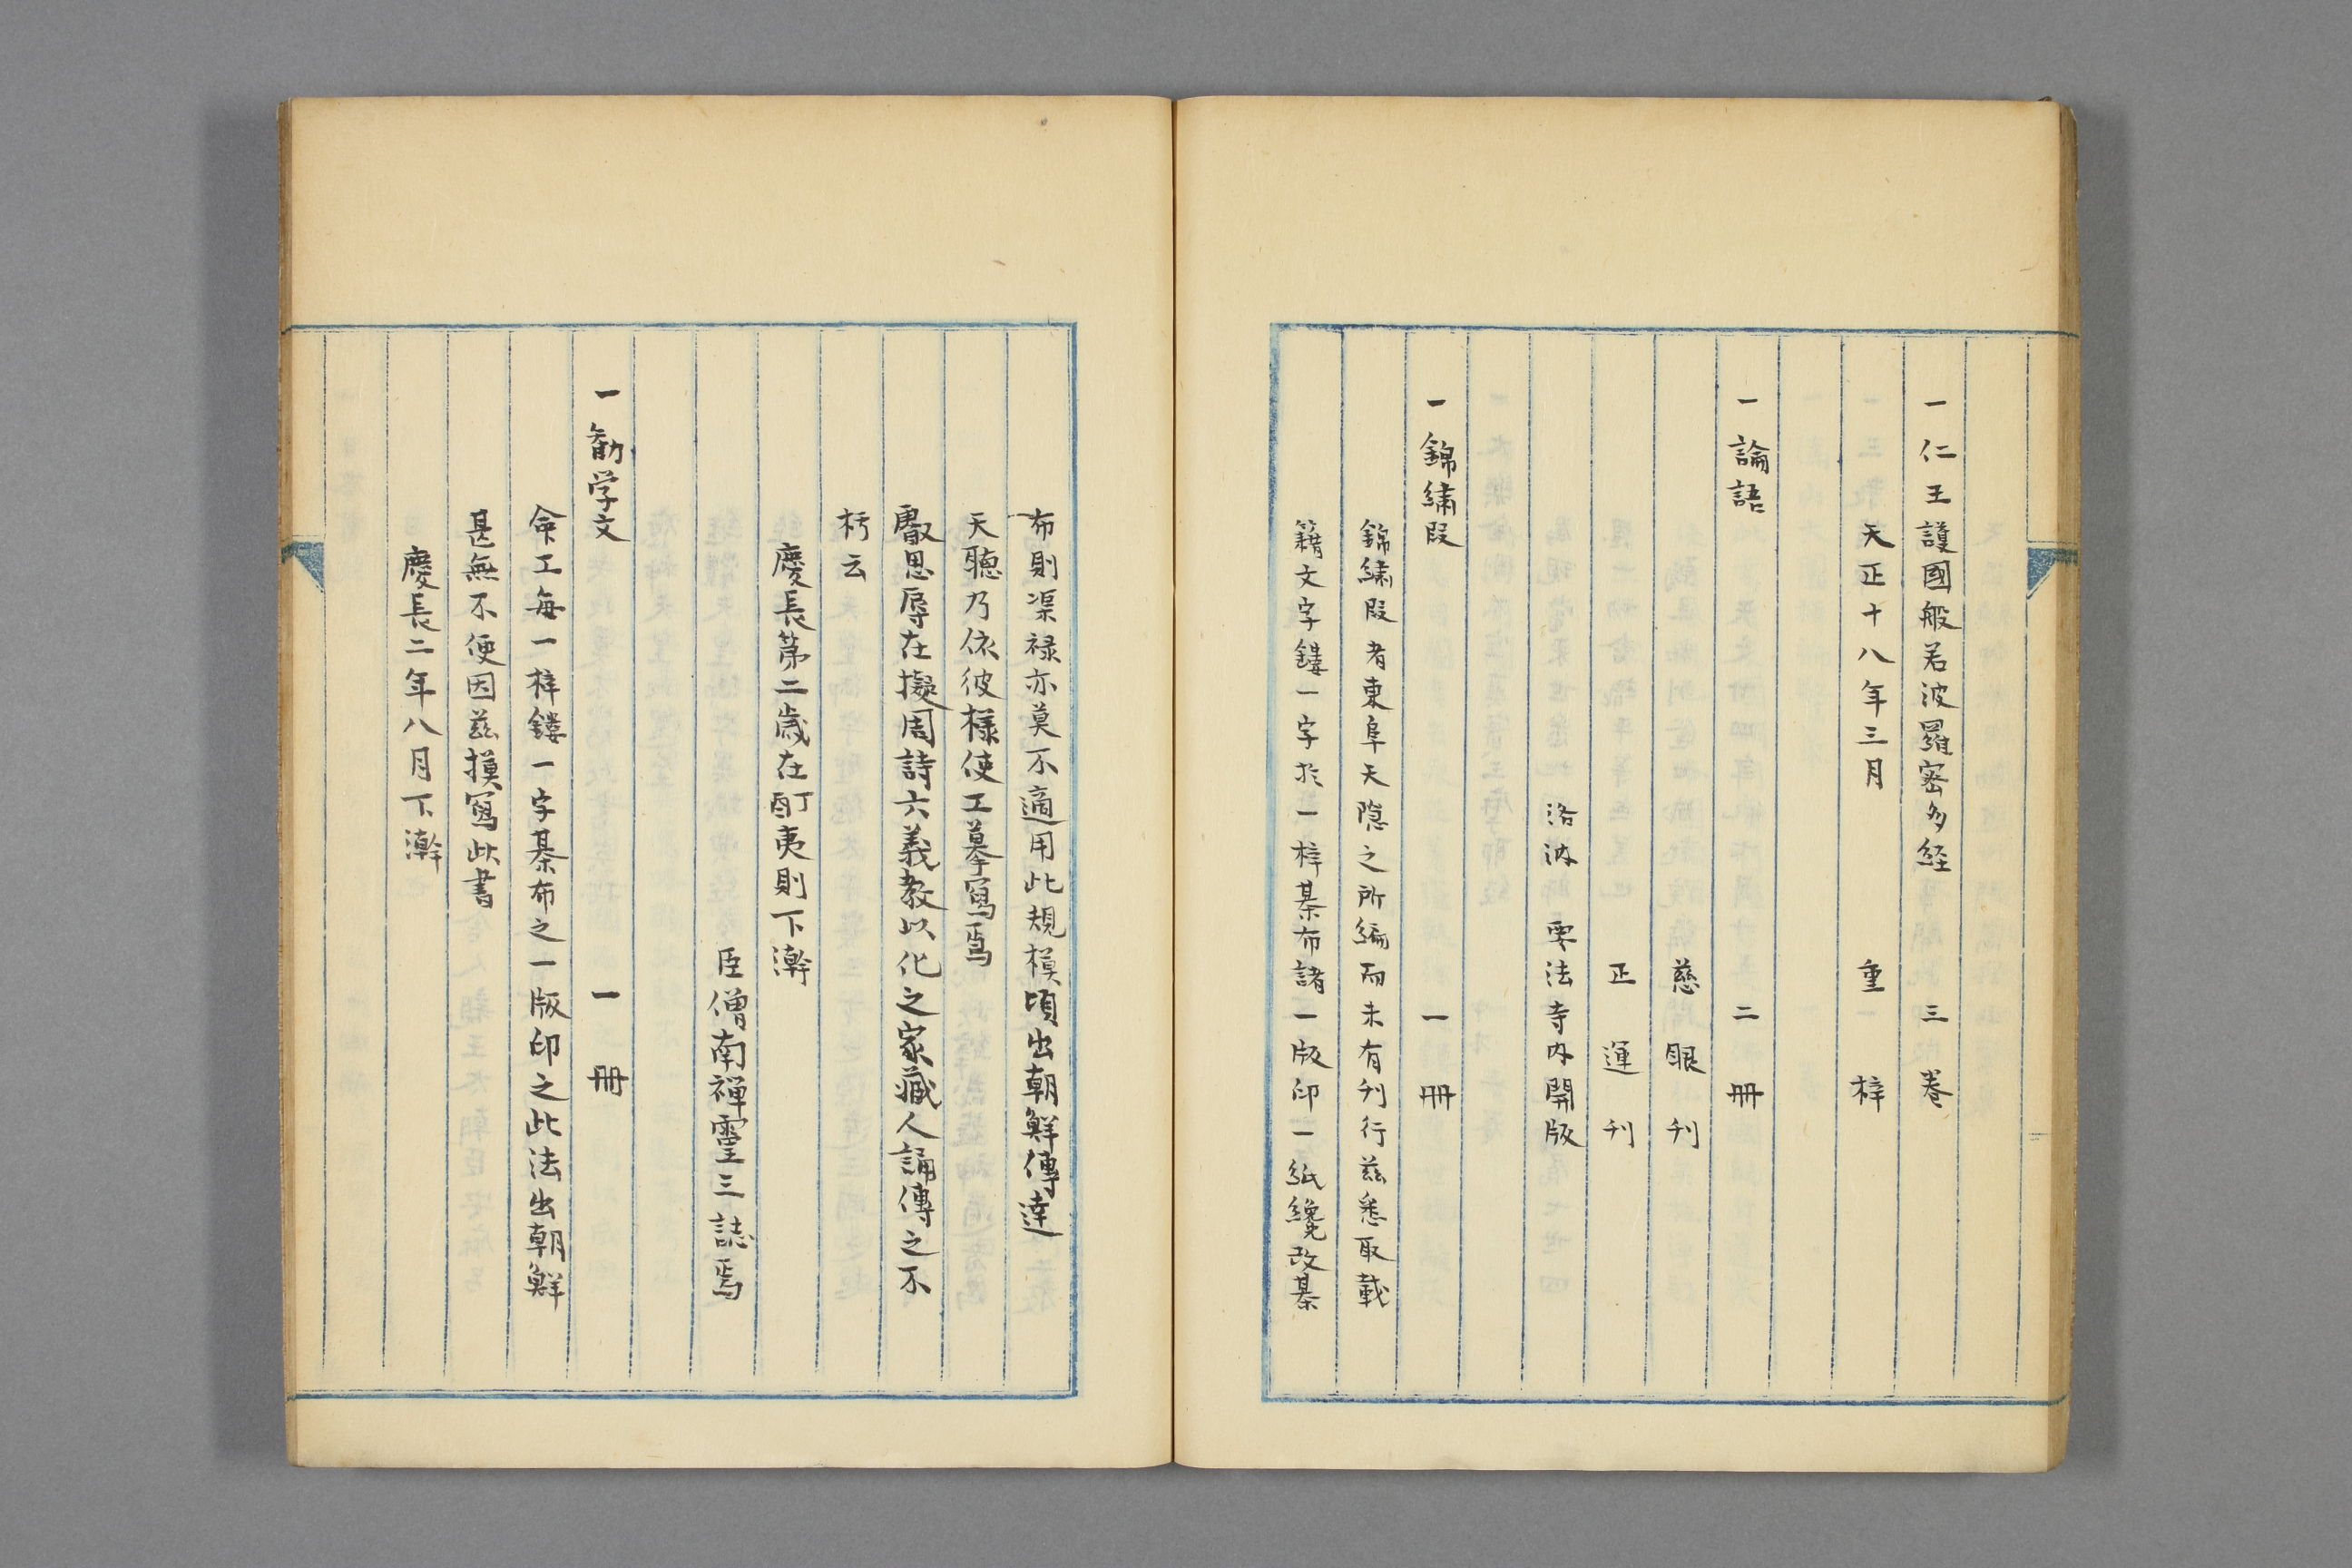 一仁王護國般若波羅密多経　三巻
天正十八年三月　重梓
一論語　二冊
慈眼刊
正運刊
洛汭　要法寺内開版
一錦繍段　一冊
錦繍段者東阜天隠之所編而未有刊行茲悉取載
籍文字鏤一字於一梓棊布諸一版印一紙纔改棊
布則渠禄亦莫不適用此規模頃出朝鮮傳達
天聴乃依彼様使工摹寫焉
叡思辱在擬周詩六義教以化之家藏人誦傳之不
朽云
慶長第二歳在酊夷則下澣
臣僧南禅霊三誌焉
一勧学文　一冊
命工每一梓鏤一字棊布之一版印之此法出朝鮮
甚無不便因茲摸寫此書
慶長二年八月下澣